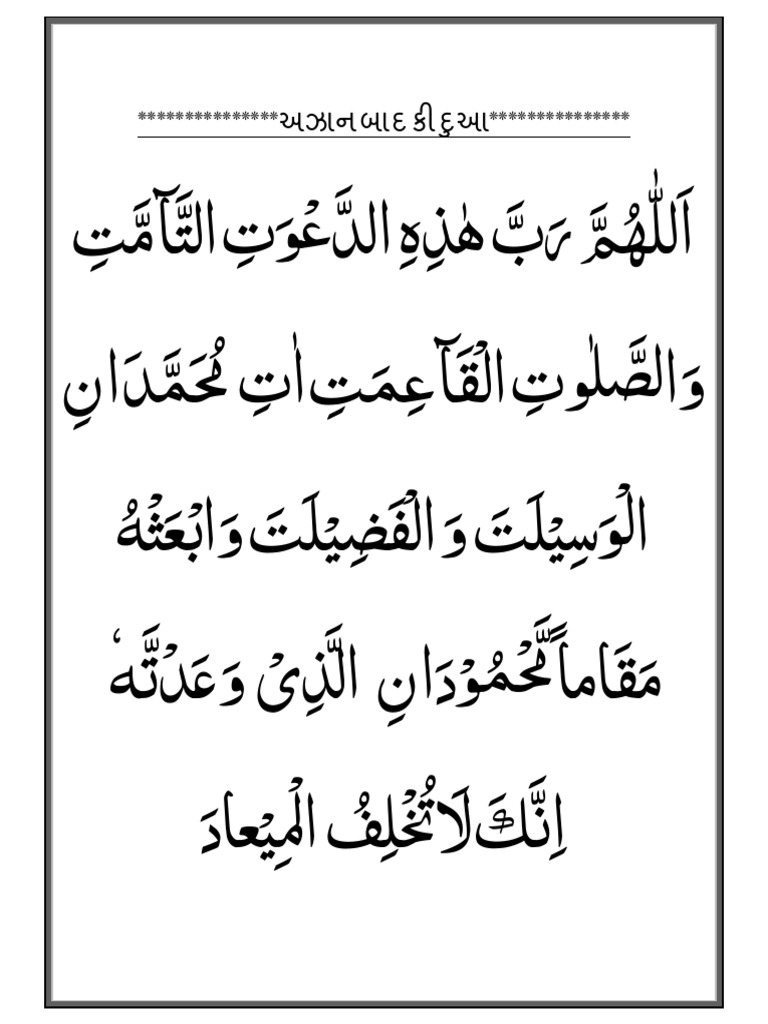 ***************અઝાન બાદ કી દુઆ***************
اَللّٰهُمَّ رَبَّ هٰذِهِ الدَّعْوَتِ التَّآمَّتِ
وَالصَّلٰوتِ الْقَآعِمَتِ اٰتِ مُحَمَّدَانِ
الْوَسِيْلَتَ وَ الْفَضِيْلَتَ وَابْعَثْهُ
مَقَاماً مَّحْمُوْدَانِ الَّذِىْ وَعَدْتَّهٗ
اِنَّكَ لَا تُخْلِفُ الْمِيْعادَ